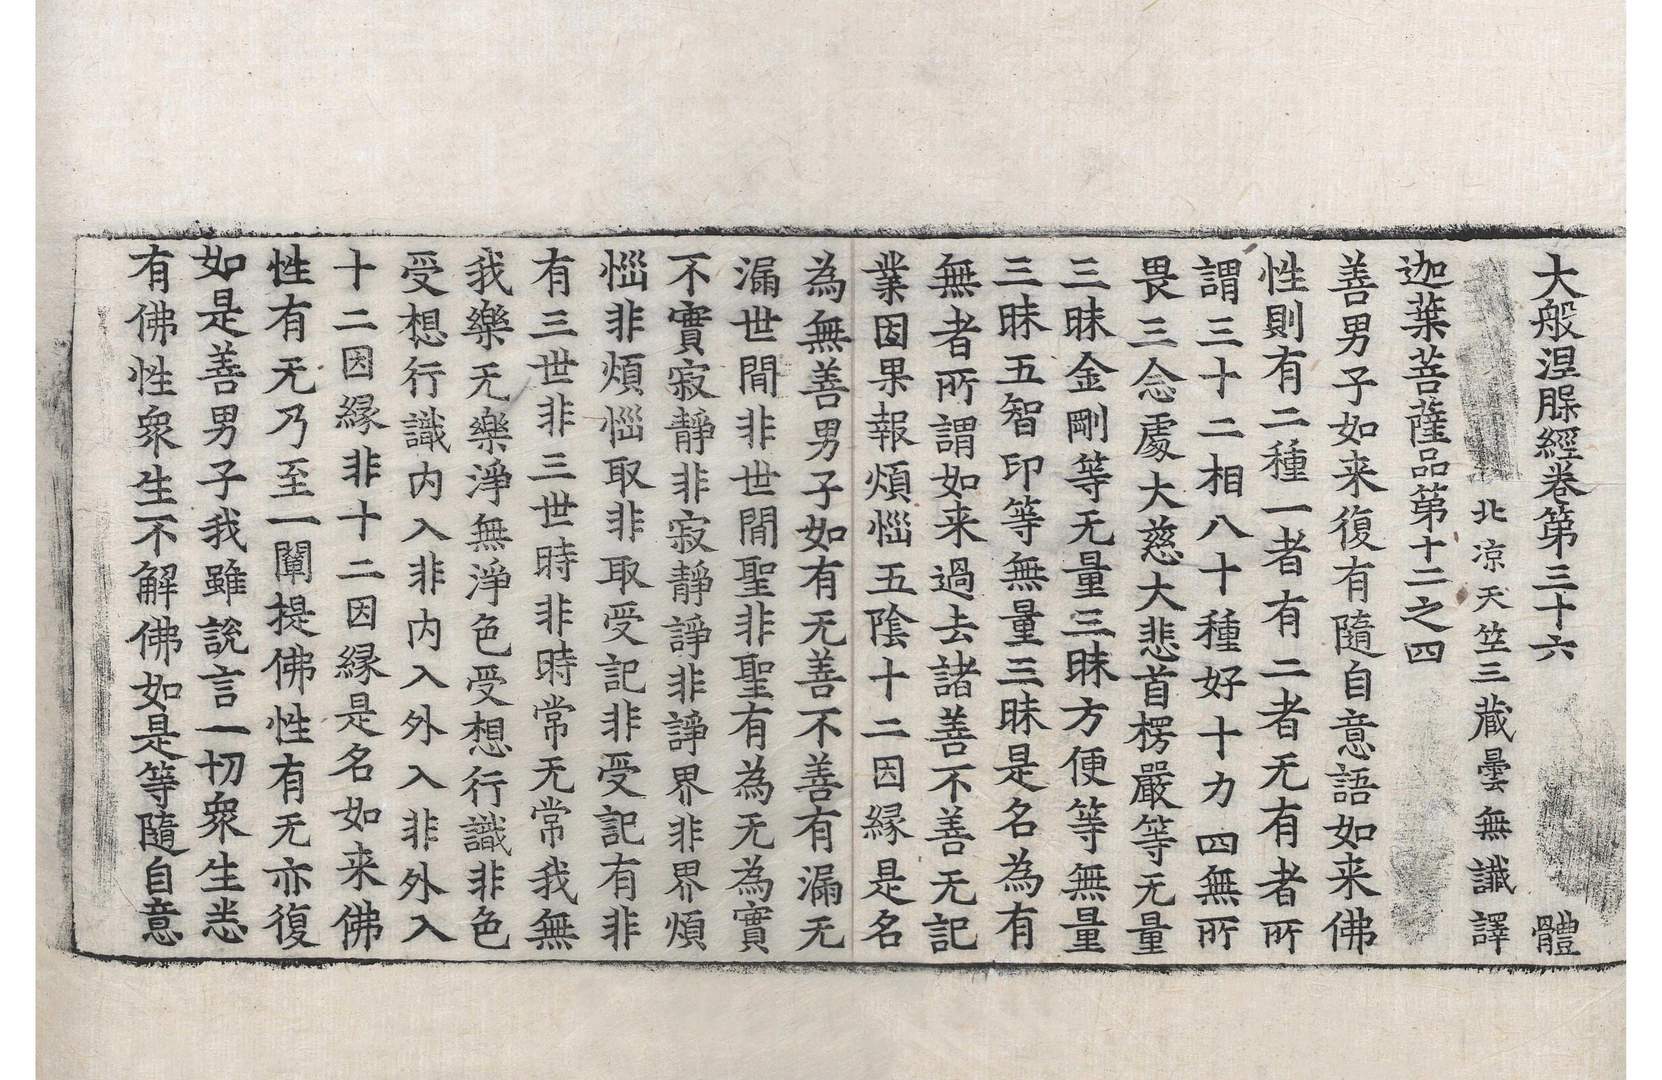 大般涅槃經卷第三十六 體
北凉天竺三藏曇無讖譯
迦葉菩薩品第十二之四
善男子如来復有隨自意語如来佛
性則有二種一者有二者无有者所
謂三十二相八十種好十力四無所
畏三念處大慈大悲首楞嚴等无量
三昧金剛等无量三昧方便等無量
三昧五智印等無量三昧是名為有
無者所謂如来過去諸善不善无記
業因果報煩惱五陰十二因緣是名
為無善男子如有无善不善有漏无
漏世間非世間聖非聖有為无為實
不實寂靜非寂靜諍非諍界非界煩
惱非煩惱取非取受記非受記有非
有三世非三世時非時常无常我無
我樂无樂淨無淨色受想行識非色
受想行識内入非内入外入非外入
十二因緣非十二因緣是名如来佛
性有无乃至一闡提佛性有无亦復
如是善男子我雖說言一切衆生悉
有佛性衆生不解佛如是等隨自意